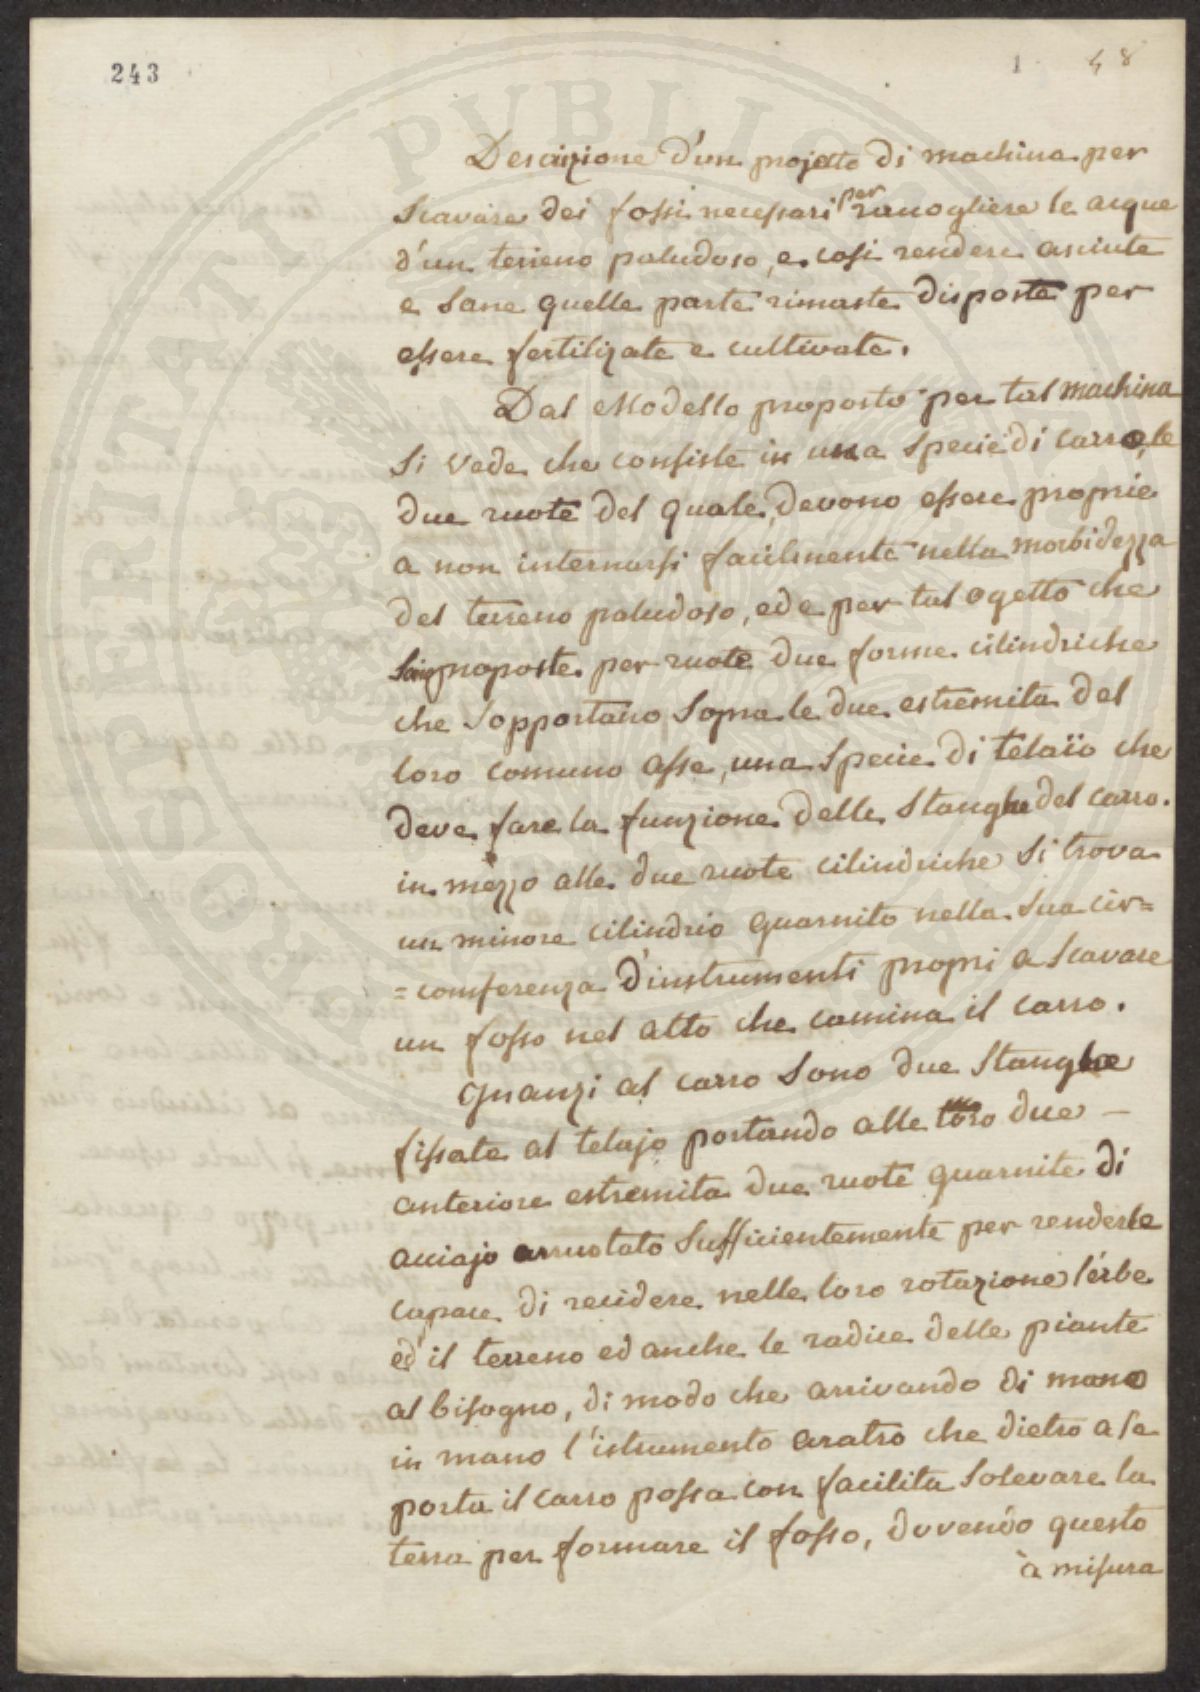 243
1
48
PROSPERITATI PVBLICAE AVGENDAE
Descrizione d'un projetto di machina per
scavare dei fossi necessari per raccogliere le acque
d'un terreno paludoso, e così rendere asciute
e sane quelle parte rimaste disposte per
essere fertilizate e cultivate.
Dal Modello proposto per tal machina
si vede che consiste in una specie di carro, le
due ruote del quale, devono essere proprie
a non internarsi facilmente nella morbidezza
del terreno paludoso, ed e per tal ogetto che
proposte per ruote due forme cilindriche
che sopportano sopra le due estremita del
loro comuno asse, una specie di telaïo che
deve fare la funzione delle stanghe del carro.
in mezzo alle due ruote cilindriche si trova
un minore cilindrio guarnito nella sua cir=
=comferenza d'instrumenti propri a scavare
un fosso nel atto che camina il carro.
Gnanzi al carro sono due stanghe
fissate al telajo portando alle loro due
anteriore estremita due ruote guarnite di
acciajo arruotato sufficientemente per renderle
capace di recidere nelle loro rotazione l'erbe
ed il terreno ed anche le radice delle piante
al bisogno, di modo che arrivando di mano
in mano l'istrumento aratro che dietro a se
porta il carro possa con facilita solevare la
terra per formare il fosso, dovendo questo
à misura